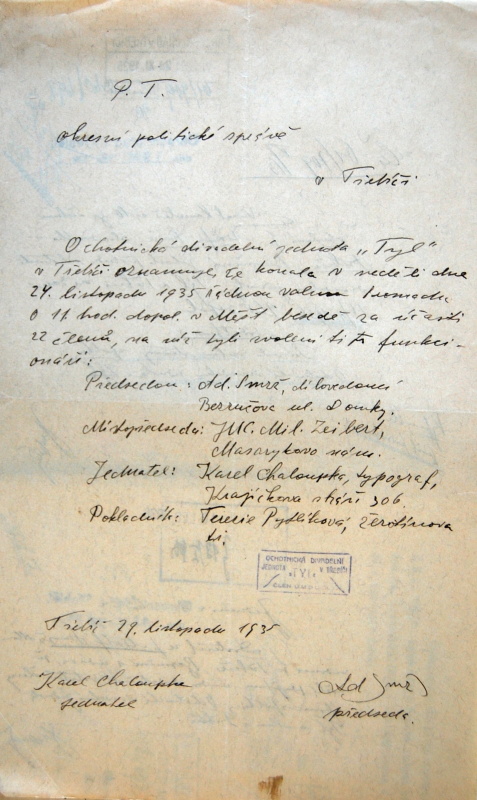 P. T.
okresní politické správě
v Třebíči
Ochotnická divadelní jednota „Tyl"
v Třebíči oznamuje, že konala v neděli dne
24. listopadu 1935 řádnou valnou hromadu
o 11 hod. dopol. v Měšť. besedě za účasti
22 členů, na níž byli zvoleni tito funkci-
onáři:
Předsedou: Ad. Smrž, dílovedoucí
Bezručova ul. Domky.
Místopředseda: JUC. Mil. Zeibert,
Masarykovo nám.
Jednatel: Karel Chaloupka, typograf,
Krajíčkova stráň 306
Pokladník: Terezie Pytlíková, Žerotínovo
OCHOTNICKÁ DIVADELNÍ
JEDNOTA „TYL" V TŘEBÍČI
Třebíč 29. listopadu 1935
Karel Chaloupka
jednatel
Ad Smrž
předseda.